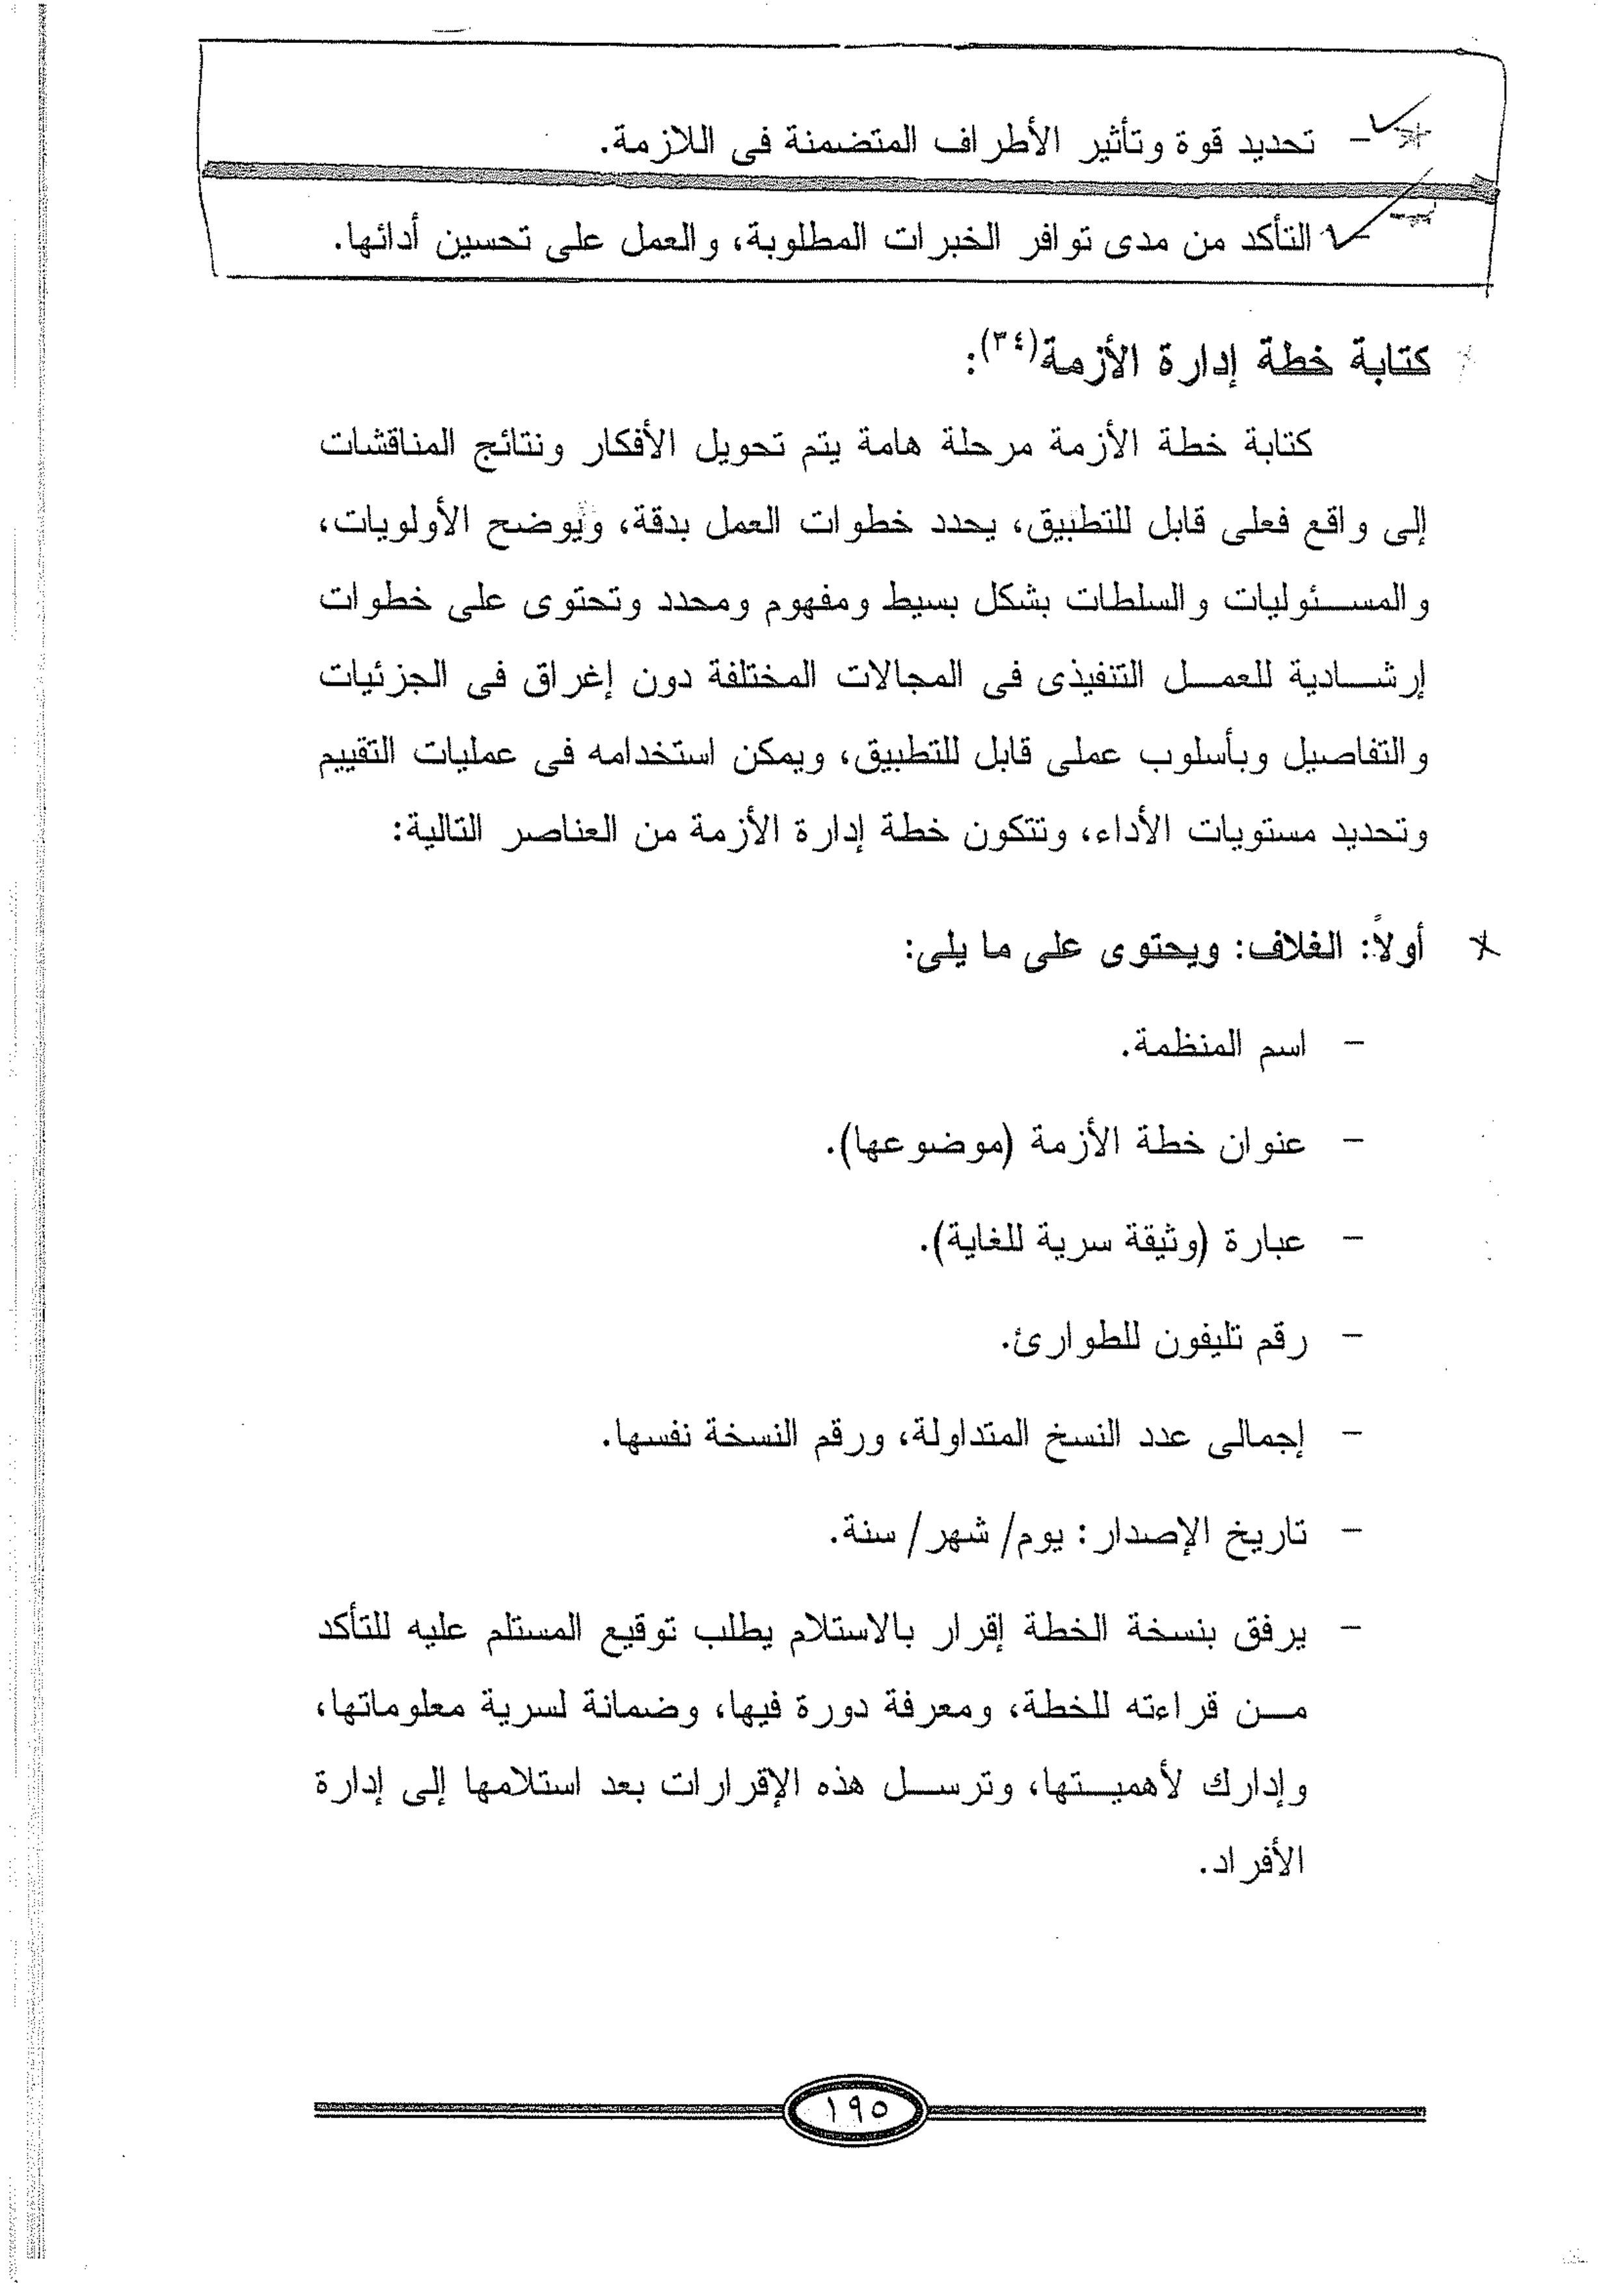 - تحديد قوة وتأثير الأطراف المتضمنة فى اللازمة.
- التأكد من مدى توافر الخبرات المطلوبة، والعمل على تحسين أدائها.
كتابة خطة إدارة الأزمة(٣٤):
كتابة خطة الأزمة مرحلة هامة يتم تحويل الأفكار ونتائج المناقشات
إلى واقع فعلى قابل للتطبيق، يحدد خطوات العمل بدقة، ويوضح الأولويات،
والمسئوليات والسلطات بشكل بسيط ومفهوم ومحدد وتحتوى على خطوات
إرشادية للعمل التنفيذى فى المجالات المختلفة دون إغراق فى الجزئيات
والتفاصيل وبأسلوب عملى قابل للتطبيق، ويمكن استخدامه فى عمليات التقييم
وتحديد مستويات الأداء، وتتكون خطة إدارة الأزمة من العناصر التالية:
أولاً: الغلاف: ويحتوى على ما يلى:
- اسم المنظمة.
- عنوان خطة الأزمة (موضوعها).
- عبارة (وثيقة سرية للغاية).
- رقم تليفون للطوارئ.
- إجمالى عدد النسخ المتداولة، ورقم النسخة نفسها.
- تاريخ الإصدار: يوم/ شهر/ سنة.
- يرفق بنسخة الخطة إقرار بالاستلام يطلب توقيع المستلم عليه للتأكد
من قراءته للخطة، ومعرفة دورة فيها، وضمانة لسرية معلوماتها،
وإدارك لأهميتها، وترسل هذه الإقرارات بعد استلامها إلى إدارة
الأفراد.
١٩٥